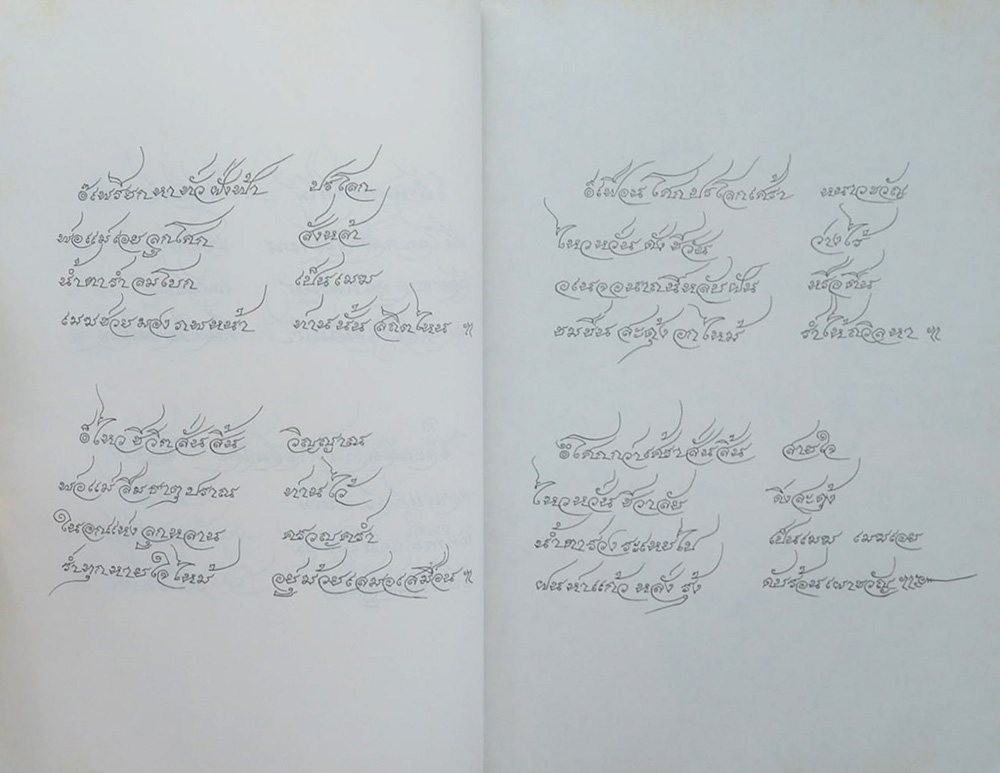 ๏ เพรียกหาทั่วฝั่งฟ้า ปรโลก
พ่อแม่เอยลูกโศก สั่งหล้า
น้ำตาร่ำลมโบก เป็นเมฆ
เมฆช่วยมองภพหน้า ท่านนั้น สถิตไหน ฯ
๏ ไหวชีวิตสั่นสิ้น วิญญาณ
พ่อแม่สืบธาตุปราณ ท่านไว้
ในอกแห่งลูกหลาน ครวญคร่ำ
ร่ำทุกหายใจไหม้ อยู่ม้วยเสมอเสมือน ฯ
๏ เฟื่อน โลกปรโลกเศร้า หนาวขวัญ
ไหวหวั่นดั่งชีวัน วางไร้
อเนจอนาถนี่หลับฝัน หรือตื่น
ขมขื่นสะดุ้งอกไหม้ ร่ำไห้ถวิลหา ฯ
๏ โศกวานเศร้าสั่นสิ้น สายใจ
ไหวหวั่นชีวาลัย ดั่งสะดุ้ง
น้ำตาร่วงระเหยไป เป็นเมฆ เมฆเอย
ฝนห่าแก้วหลั่งรุ้ง ดับร้อนเผาขวัญ ฯ๛